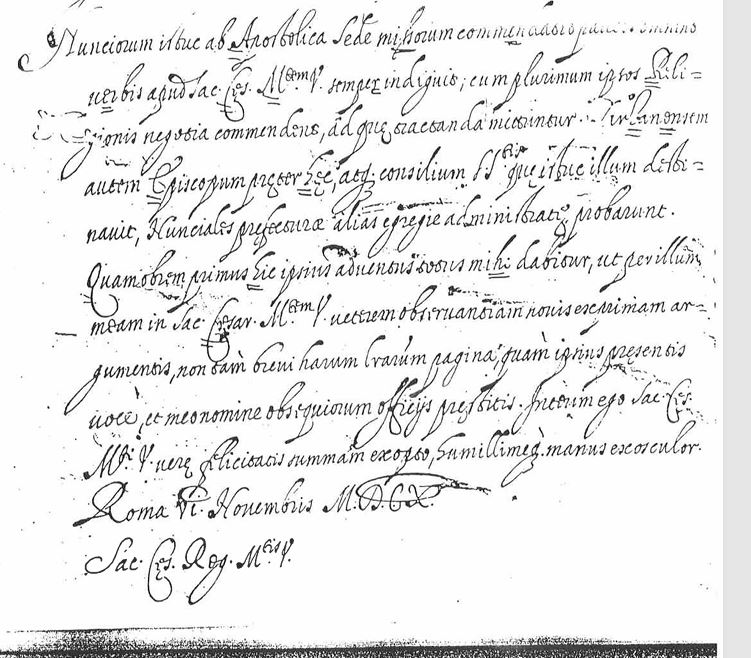 Nunciorum istuc ab Apostolica Sede missorum commendatos
verbis apud Sac. Cęs. M.tem V. semper indiguis; cum plurimum ipsos Reli=
gionis negotia commendent, ad quę tractanda mittuntur. Sirsanensem
autem Episcopum pręter hęc, atq. consilium SS.tis quę istuc illum desti=
navit, Nunciales prefecturæ alias egregie administratę probarunt.
Quamobrem primus hic ipsius adventus totus mihi dabitur, ut per illum
meam in Sac. Cęsar. M.tem V. veterem observantiam novis exprimam ar=
gumentis, non tàm brevi harum lrarum pagina, quàm ipsius pręsentis
voce, et meo nomine obsequiorum officijs pręstitis. Interim ego Sac. Cęs.
M.ti V. verę felicitatis summam exopto, humillimeq. manus exosculor.
Roma VI. Novembris M.D.C.X.
Sac. Cęs. Reg. M.tis V.